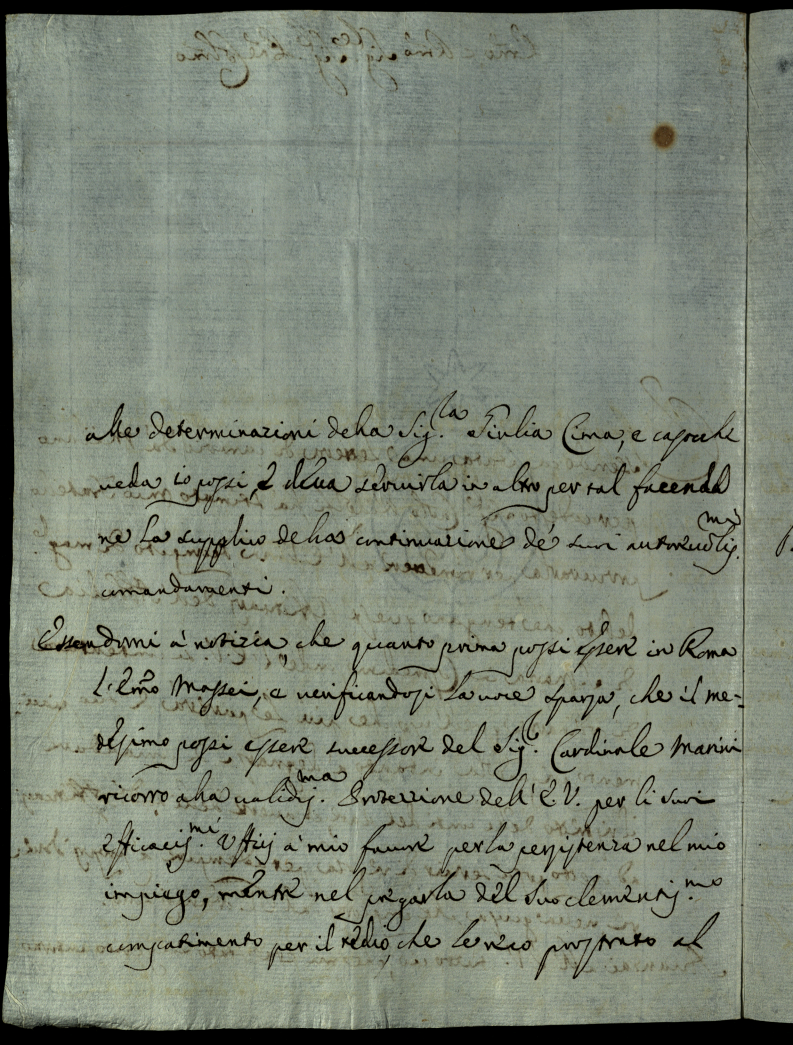 alle determinazioni della Sig.ra Giulia Cima, e capo che
veda io possi, e deva servirla in altro per tal facenda
ne La supplico della continuazione de' suoi autorevolis.mi
comandamenti.
Essendomi à notizia, che quanto prima possi essere in Roma
l'E.mo Massei, e verificandosi La voce sparsa, che il me-
desimo possi essere successore del Sig.r Cardinale Marini
ricorro alla validis.ma Protezzione dell' E.V. per li suoi
efficacis.mi Uffizij à mio favore per la persistenza nel mio
impiego, mentre nel pregarla del Suo clementis.mo
compatimento per il tedio, che le reco prostrato al